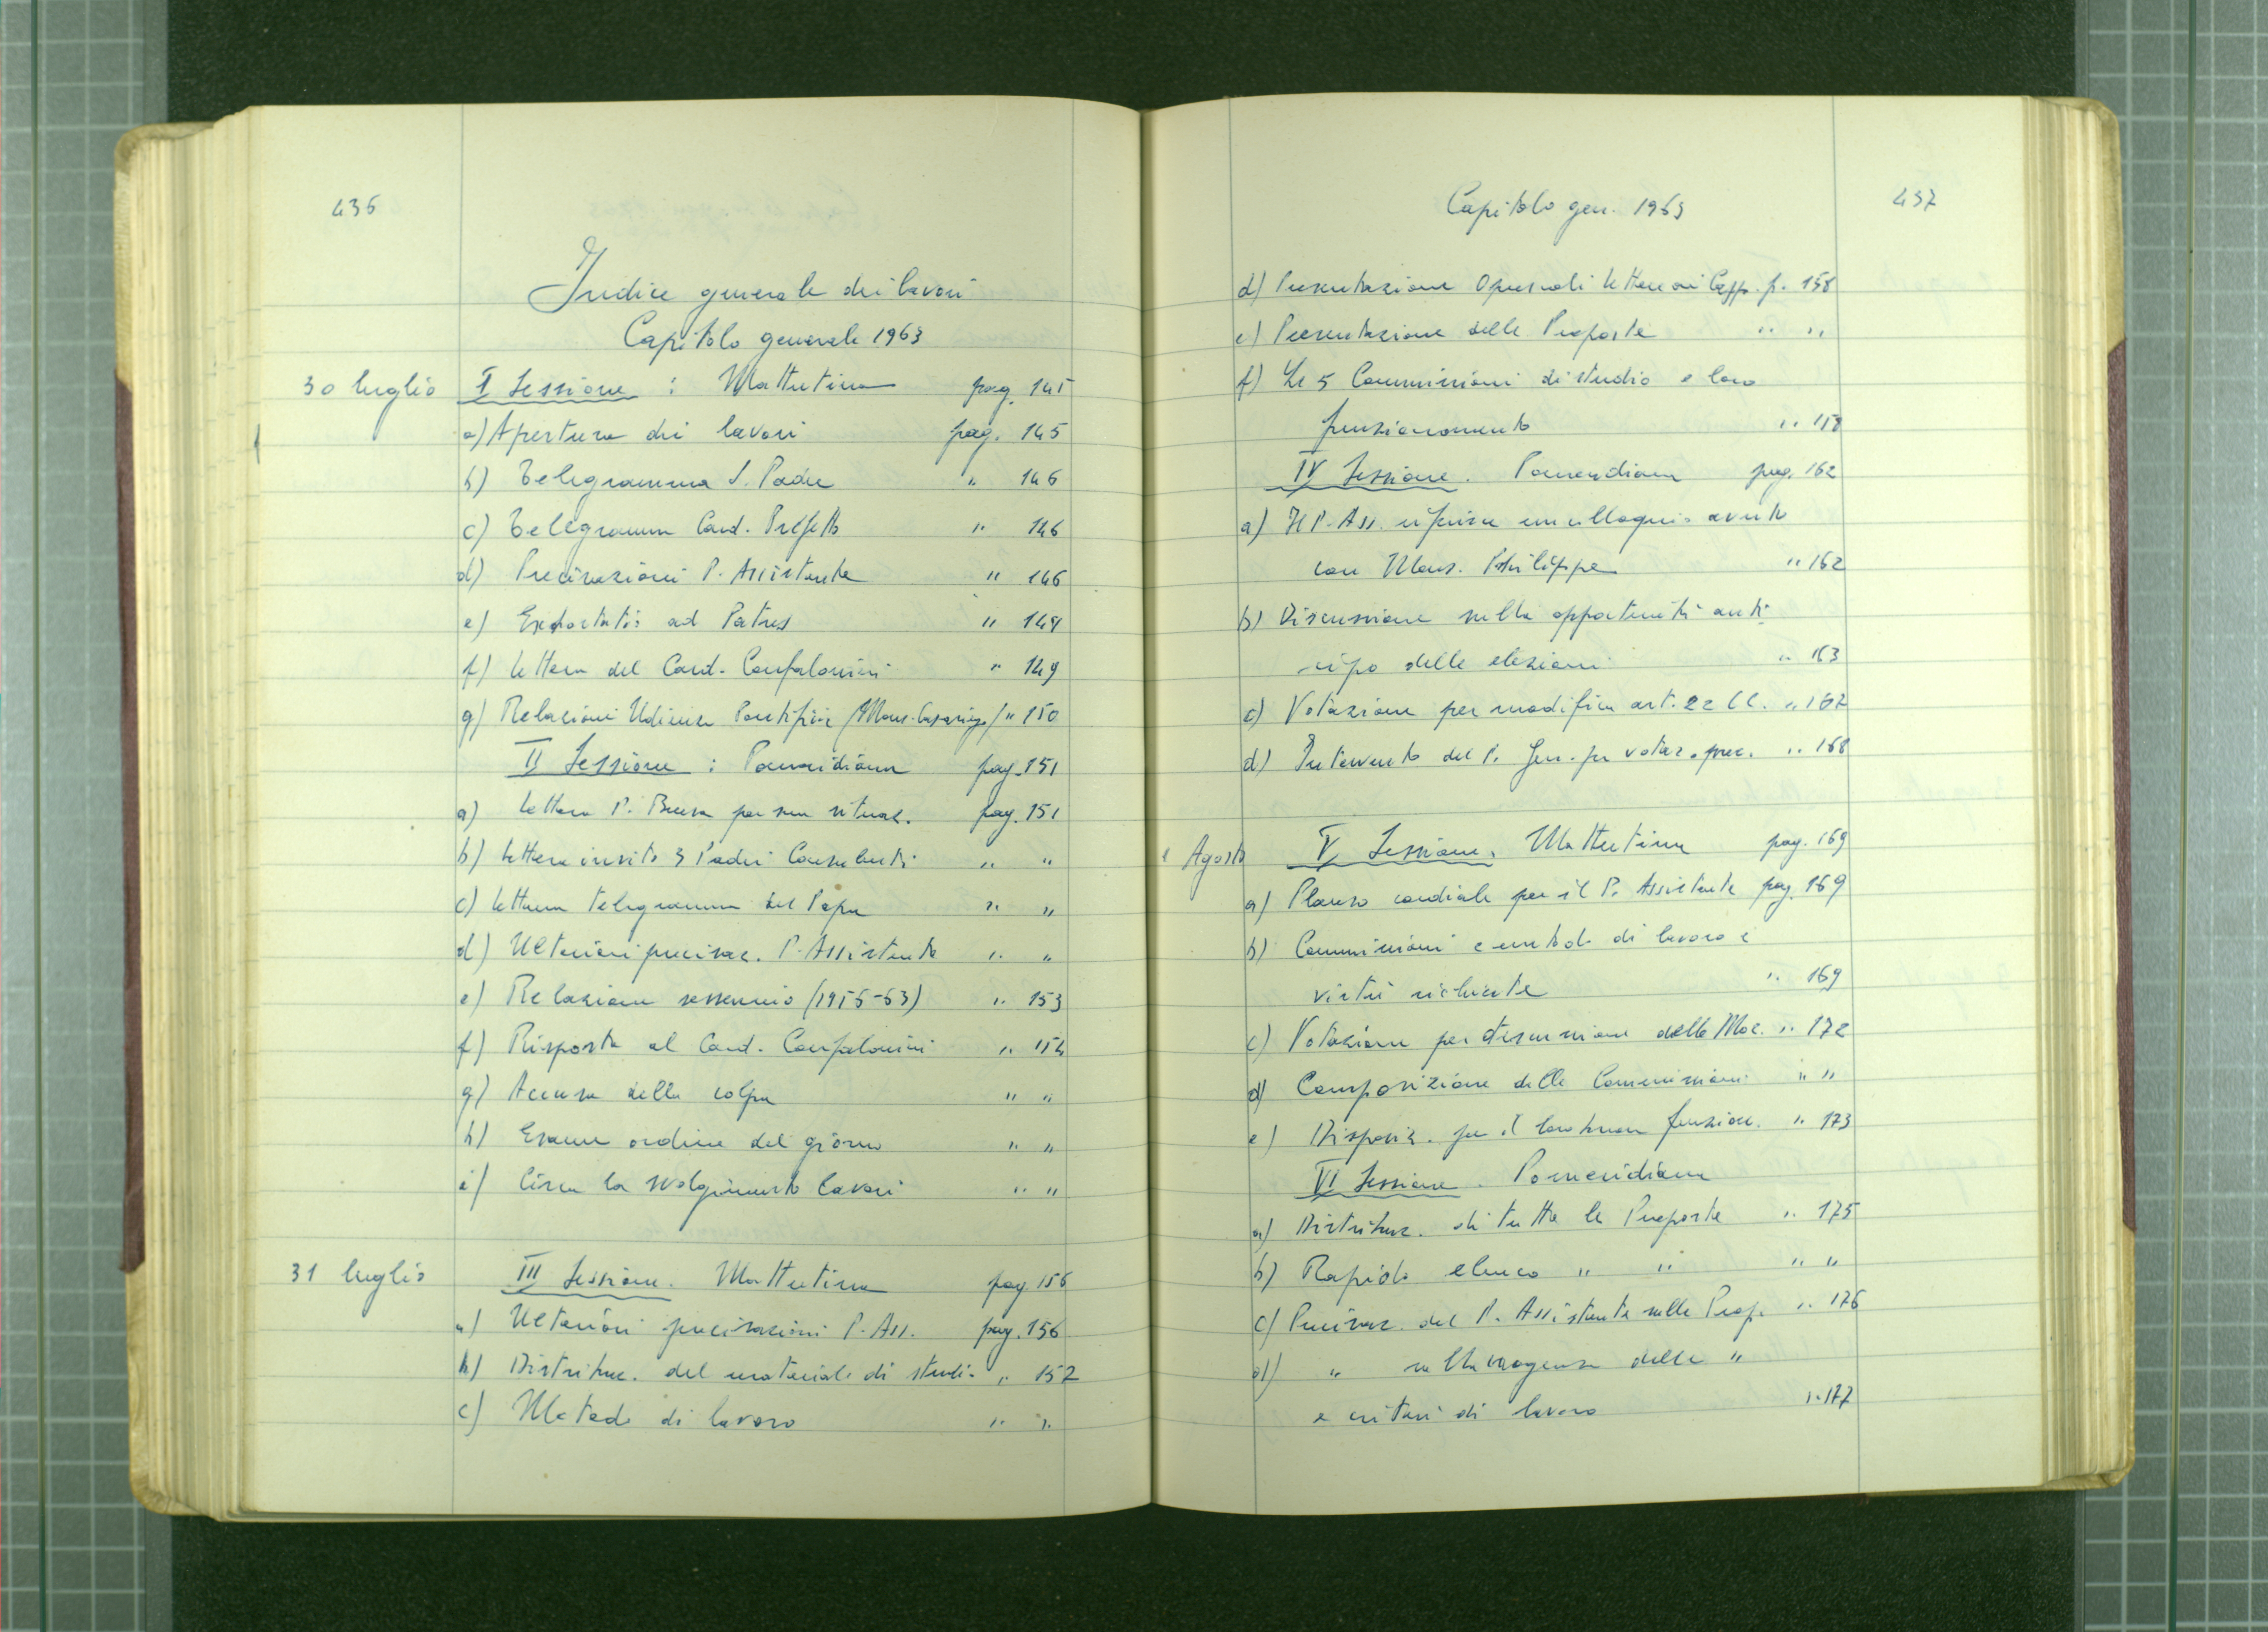 436
Indice generale dei lavori
Capitolo generale 1963
30 luglio I Sessione : Mattutina pag. 145
a) Apertura dei lavori pag. 145
b) Telegramma S. Padre " 146
c) Telegramma Card. Prefetto " 146
d) Precisazioni P. Assistente " 146
e) Exhortatio ad Patres " 149
f) lettera del Card. Confalonieri " 149
g) Relazioni Udienze Pontificie (Mons. " 150
II Sessione : Pomeridiana pag. 151
a) lettera P. per sua situaz. pag. 151
b) lettera invito 3 Padri Consultati " "
c) lettura telegramma del Papa " "
d) Ulteriori precisaz. P. Assistente " "
e) Relazione sessennio (1956-63) " 153
f) Risposta al Card. Confalonieri " 154
g) Accusa della colpa " "
h) Esame ordine del giorno " "
i) Circa lo svolgimento lavori " "
31 luglio III Sessione. Mattutina pag. 156
a) Ulteriori precisazioni P. Ass. pag. 156
b) Distribuz. del materiale di studio " 157
c) Metodo di lavoro " "
Capitolo gen. 1963 437
d) Presentazione Opuscoli lettere ai Capp. p. 158
e) Presentazione delle Proposte " "
f) Le 5 Commissioni di studio e loro
funzionamento " 158
IV Sessione. Pomeridiana pag. 162
a) Il P. Ass. riferisce un colloquio avuto
con Mons. Philippe " 162
b) Discussione sulla opportunità anti-
cipo delle elezioni " 163
c) Votazione per modifica art. 22 CC. " 167
d) Intervento del P. Gen. per votaz. prec. " 168
1 Agosto V Sessione. Mattutina pag. 169
a) Plauso cordiale per il P. Assistente pag. 169
b) Commissioni e metodo di lavoro e
virtù richieste " 169
c) Votazione per discussione delle Moz. " 172
d) Composizione delle Commissioni " "
e) Disposiz. per il loro buon funzion. " 173
VI Sessione. Pomeridiana
a) Distribuz. di tutte le Proposte " 175
b) Rapido elenco " " " "
c) Precisaz. del P. Assistente sulle Prop. " 176
d) " sulla delle "
e criteri di lavoro " 177